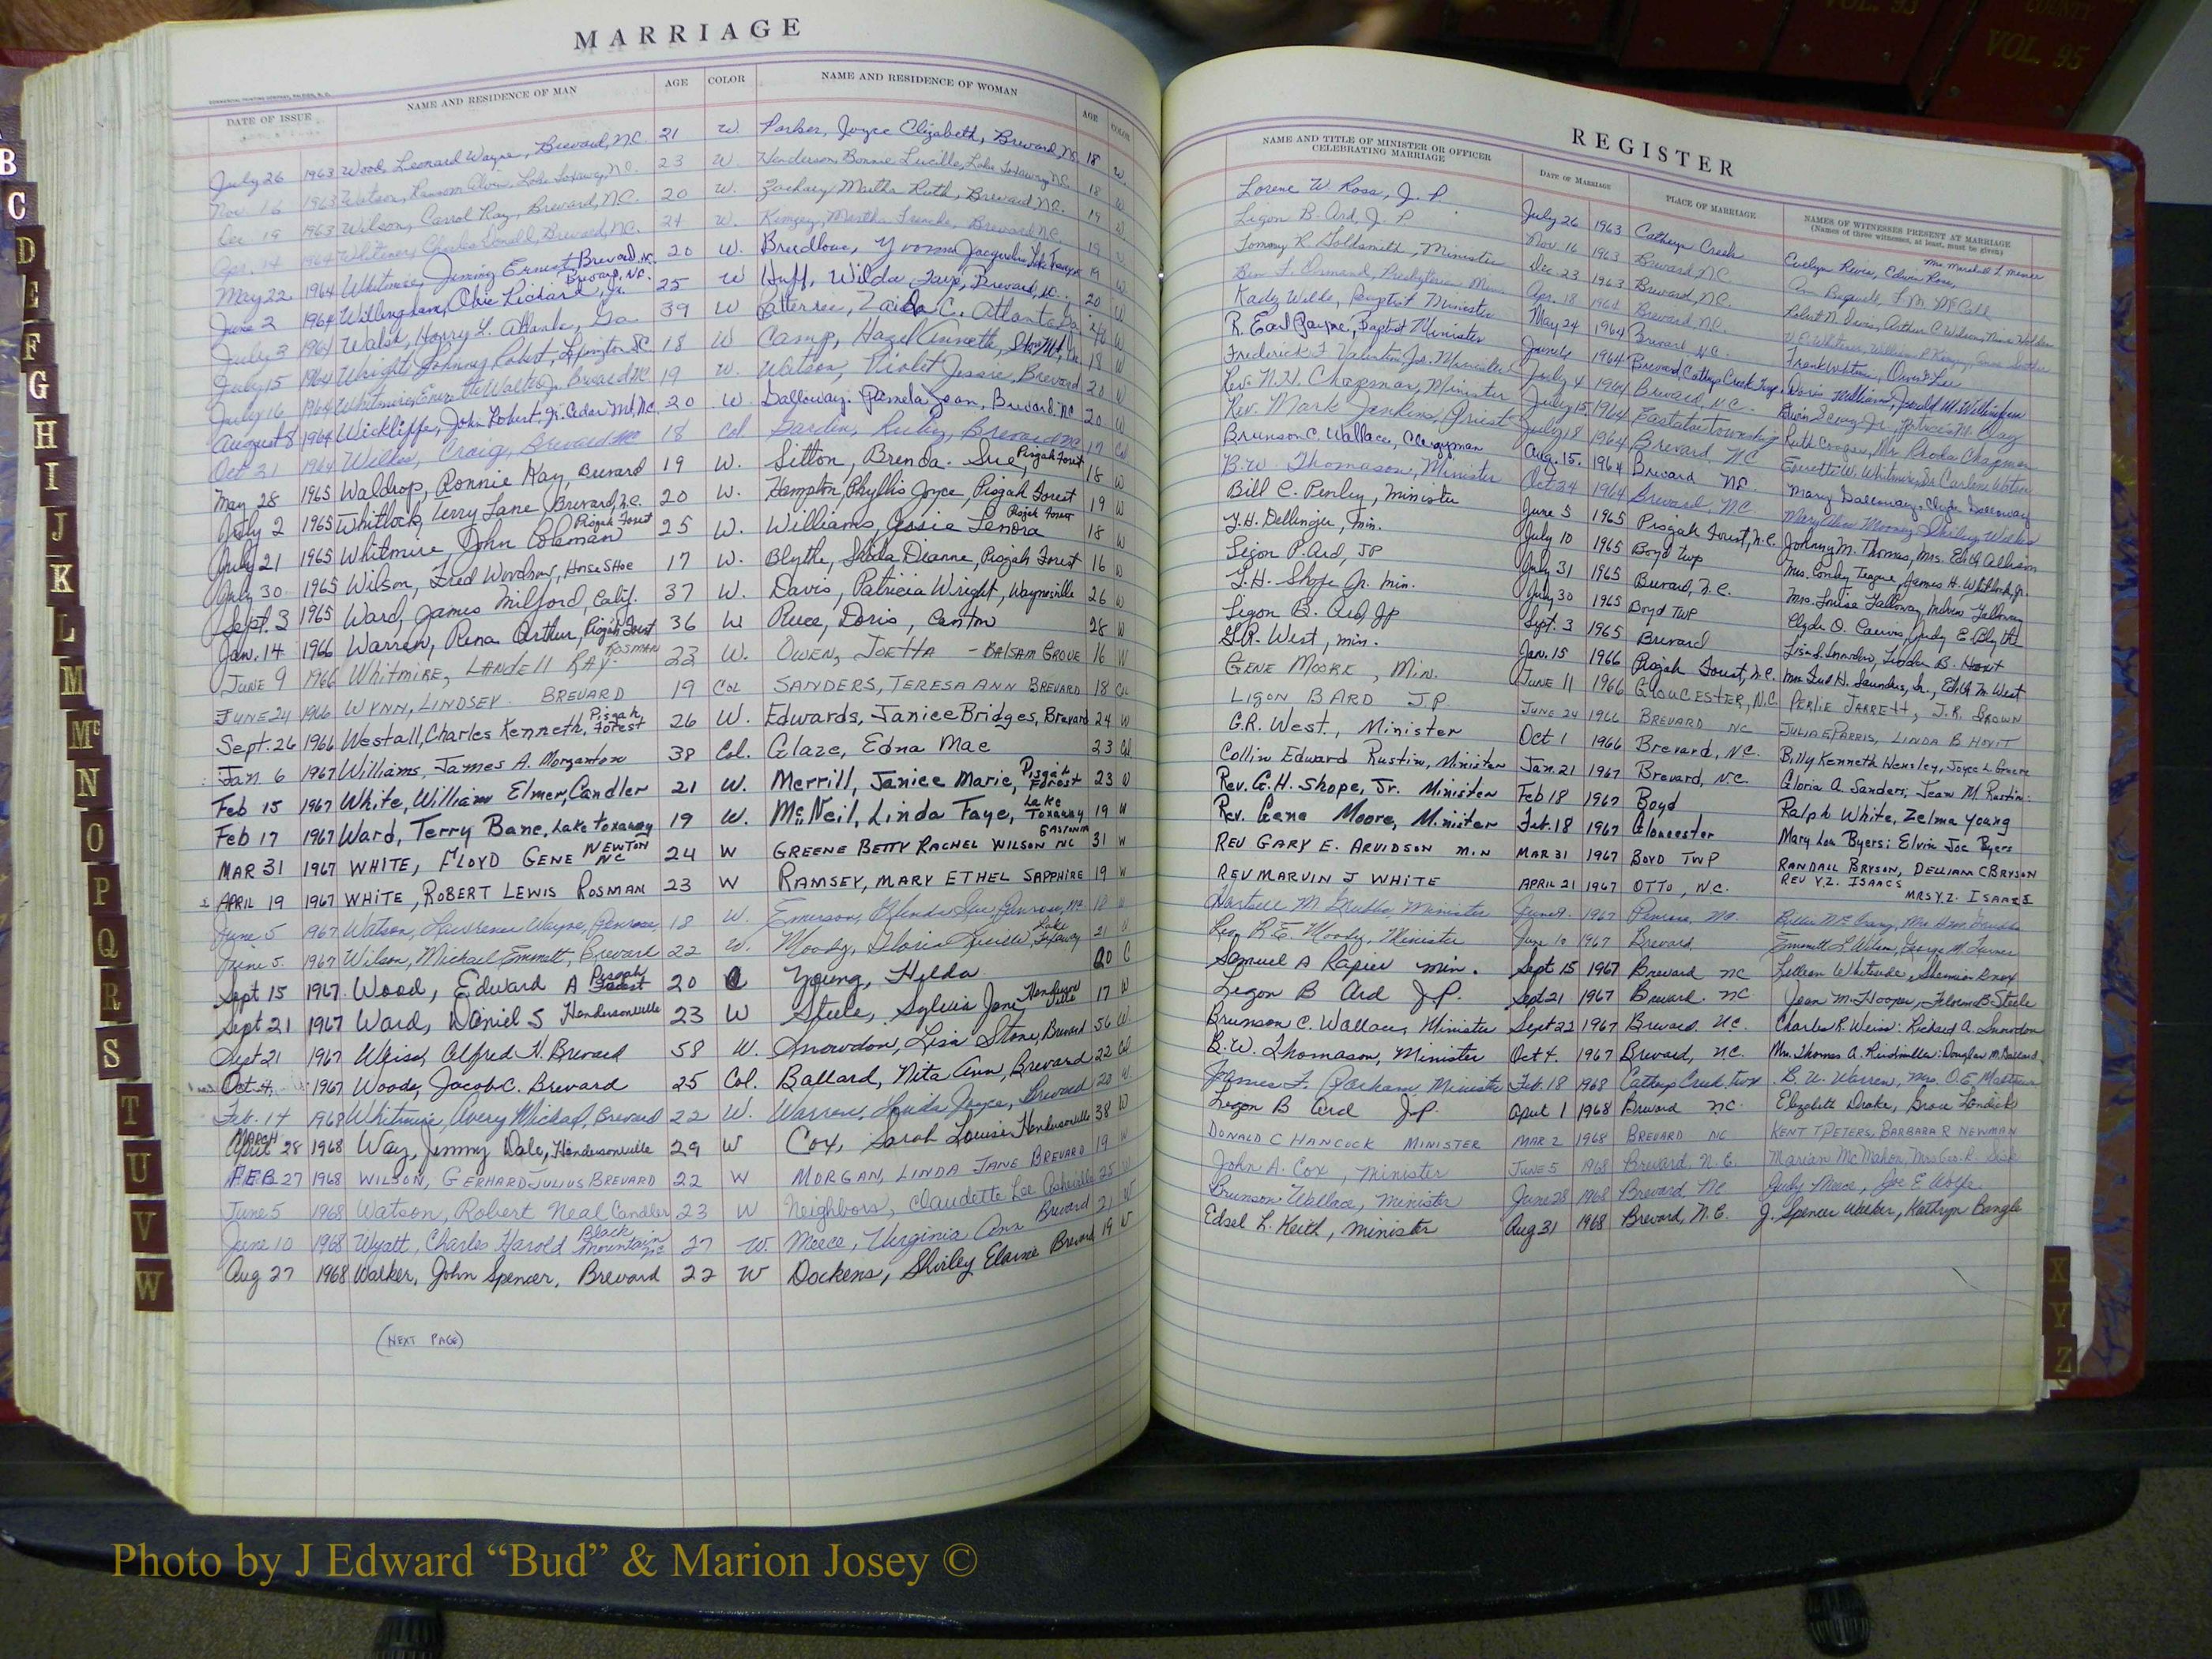 MARRIAGE
DATE OF ISSUE NAME AND RESIDENCE OF MAN AGE COLOR NAME AND RESIDENCE OF WOMAN AGE COLOR
July 26 1963 Wood, Leonard Wayne, Brevard, N.C. 21 W. Parker, Joyce Elizabeth, Brevard, NC 18 W.
Nov. 16 1963 Watson, Ransom Alvin, Lake Toxaway, N.C. 23 W. Henderson, Bonnie Lucille, Lake Toxaway NC. 18 W
Dec 19 1963 Wilson, Carrol Ray, Brevard, N.C. 20 W. Zachary Martha Ruth, Brevard, N.C. 19 W
Apr. 14 1964 Whitener, Charles Donald, Brevard, N.C. 24 W. Kimzey, Martha Brevard NC. 19 W
May 22 1964 Whitmire, Jimmy Ernest Brevard, NC 20 W. Breedlove, Yvonne Jacquelin Lake Toxaway 19 W
June 2 1964 Willingham, Obie Richard, Jr. Brevard, N.C. 25 W Huff, Wilda Faye, Brevard, NC., 20 W
July 3 1964 Walsh, Harry L. Atlanta, Ga 39 W C. Atlanta Ga W
July 15 1964 Wright Johnny Robert, SC 18 W Camp, Hazel Anneth, 18 W
July 16 1964 Whitmire, Everette Walter Jr. Brevard NC 19 W. Watson, Violet Jessie, Brevard 20 W
August 8 1964 Wickliffe, John Robert, Jr. Cedar Mt, NC, 20 W Galloway, Pamela Jean, Brevard NC 20 W
Oct 21 1964 Wilkes, Craig, Brevard NC 18 Col. Ruby, Brevard NC 17 Col
May 28 1965 Waldrop, Ronnie Hay, Brevard 19 W. Sitton, Brenda Sue, Pisgah Forest 18 W
July 2 1965 Whitlock, Terry Lane Brevard, N.C. 20 W. Hampton, Phyllis Joyce, Pisgah Forest 19 W
July 21 1965 Whitmire, John Coleman Pisgah Forest 25 W. Williams, Jessie Lenora Pisgah Forest 18 W
July 30 1965 Wilson, Fred Woodrow, Horse Shoe 17 W. Blythe, Sheila Dianne, Pisgah Forest 16 W
Sept. 3 1965 Ward, James Milford, Calif. 37 W. Davis, Patricia Wright, Waynesville 26 W
Jan. 14 1966 Warren, Rena Arthur, Pisgah Forest 36 W Reece, Doris, Canton 28 W
JUNE 9 1966 Whitmire, LANDELL RAY ROSMAN 23 W. OWEN, JOETTA - BALSAM GROVE 16 W
JUNE 24 1966 WYNN, LINDSEY BREVARD 19 Col SANDERS, TERESA ANN BREVARD 18 Col
Sept. 26 1966 Westall, Charles Kenneth, Pisgah Forest 26 W. Edwards, Janice Bridges, Brevard 24 W
Jan 6 1967 Williams, James A. Morganton 38 Col. Glaze, Edna Mae 23 Col
Feb 15 1967 White, William Elmer, Candler 21 W. Merrill, Janice Marie, Pisgah Forest 23 W
Feb 17 1967 Ward, Terry Bane, Lake Toxaway 19 W. McNeil, Linda Faye, Lake Toxaway 19 W
MAR 31 1967 WHITE, FLOYD GENE NEWTON NC 24 W GREENE BETTY RACHEL WILSON GASTONIA NC 31 W
APRIL 19 1967 WHITE, ROBERT LEWIS ROSMAN 23 W RAMSEY, MARY ETHEL SAPPHIRE 19 W
June 5 1967 Watson, Lawrence Wayne, Penrose, 18 W. Emerson, Glenda Sue, Penrose, NC 18 W
June 5. 1967 Wilson, Michael Emmett, Brevard 22 W. Moody, Gloria Lucille Lake Toxaway 21 W
Sept 15 1967. Wood, Edward A Pisgah Forest 20 C Young, Hilda 20 C
Sept 21 1967 Ward, Daniel S Hendersonville 23 W Steele, Sylvia Jane Hendersonville 17 W
Sept 21 1967 Weiss, Alfred H. Brevard 58 W. Snowdon, Lisa Stone, Brevard 56 W
Oct 4, 1967 Woods, Jacob C. Brevard 25 Col. Ballard, Nita Ann, Brevard 22 Col
Feb. 14 1968 Whitmire, Avery Michael, Brevard 22 W. Warren, Linda Joyce, Brevard 20 W
MARCH 28 1968 Way, Jimmy Dale, Hendersonville 29 W Cox, Sarah Louise Hendersonville 38 W
FEB 27 1968 WILSON, GERHARD JULIUS BREVARD 22 W MORGAN, LINDA JANE BREVARD 19 W
June 5 1968 Watson, Robert Neal Candler 23 W Neighbors, Claudette Lee Asheville 25 W
June 10 1968 Wyatt, Charles Harold Black Mountain NC 27 W. Meece, Virginia Ann Brevard 21 W
Aug 27 1968 Walker, John Spencer, Brevard 22 W Dockens, Shirley Elaine Brevard 19 W
(NEXT PAGE)
REGISTER
NAME AND TITLE OF MINISTER OR OFFICER CELEBRATING MARRIAGE DATE OF MARRIAGE PLACE OF MARRIAGE NAMES OF WITNESSES PRESENT AT MARRIAGE
(Names of three witnesses, at least, must be given)
Lorene W. Ross, J. P. July 26 1963 Cathey Creek Evelyn Edwin Ross, Mrs Marshall
Ligon B. Ard, J. P. Nov 16 1963 Brevard, NC McCall
Tommy R. Goldsmith, Minister Dec. 23 1963 Brevard, NC. Robert N. Davis, Arthur C Wilson,
Ben F. Ormand, Presbyterian Min. Apr. 18 1964 Brevard, NC. Whitener, William
Kady Wilde, Baptist Minister May 24 1964 Brevard NC. Frank Whitmire,
R. Earl Payne, Baptist Minister June 6 1964 Brevard, Catheys Creek Twp. Doris Williams, Gerald M. Willingham
Frederick F. Valentine, Jr. Minister July 4 1964 Brevard, N.C.
Rev. N.H. Chapman, Minister July 15 1964 Eastatoe Township Ruth Mrs Rhoda Chapman
Rev. Mark Jenkins, Priest July 18 1964 Brevard NC Everette W. Whitmire, Sr Carlene Watson
Brunson C. Wallace, Clergyman Aug. 15. 1964 Brevard NC Mary Galloway, Clyde Galloway
B.W. Thomason, Minister Oct 24 1964 Brevard, NC. Mary Alice Mooney, Shirley Wilkes
Bill C. Penley, Minister June 5 1965 Pisgah Forest, N.C. Johnny M. Thomas, Mrs. Edith Allison
Y.H. Dellinger, Min. July 10 1965 Boyd twp Mrs. Conley Teague, James H. Whitlock, Jr.
Ligon P. Ard, JP July 31 1965 Brevard, N.C. Mrs. Louise Galloway, Melvin Galloway
G.H. Shope Jr. Min. July 30 1965 Boyd TWP Clyde O. Judy E. Blythe
Ligon B. Ard, Jp Sept. 3 1965 Brevard Lisa S. Snowdon, Linda B. Hoxit
G.R. West, min. Jan. 15 1966 Pisgah Forest, N.C. Mrs Fred H. Saunders, Sr., Edith M. West
GENE MOORE, Min. JUNE 11 1966 GLOUCESTER, N.C. PERLIE JARRETT, J.R. BROWN
LIGON B ARD J.P. JUNE 24 1966 BREVARD NC JULIA E PARRIS, LINDA B HOXIT
G.R. West, Minister Oct 1 1966 Brevard, NC. Billy Kenneth Hensley, Joyce L Greene
Collin Edward Rustin, Minister Jan. 21 1967 Brevard, NC. Gloria A. Sanders, Jean M. Rustin.
Rev. G.H. Shope, Jr. Minister Feb 18 1967 Boyd Ralph White, Zelma Young
Rev. Gene Moore, Minister Feb. 18 1967 Gloucester Mary Lou Byers; Elvin Joe Byers
REV GARY E. ARVIDSON MIN MAR 31 1967 BOYD TWP RANDALL BRYSON, DELLIAM C BRYSON
REV MARVIN J WHITE APRIL 21 1967 OTTO, N.C. REV Y.Z. ISAACS MRS Y.Z. ISAACS
Hartsell M Grubbs, Minister June 9. 1967 Penrose, NC. Billie McCrary, Mrs H.M. Grubbs
Rev B.E. Moody, Minister June 10 1967 Brevard, Emmett L Wilson, George M. Turner
Samuel A Rapier min. Sept 15 1967 Brevard NC Lillian Whiteside, Shermin Knox
Ligon B Ard J.P. Sept 21 1967 Brevard. NC Jean M. Hooper, Steele
Brunson C. Wallace, Minister Sept 22 1967 Brevard. NC. Charles R. Weiss: Richard A. Snowdon
B.W. Thomason, Minister Oct 4. 1967 Brevard, N.C. Mrs. Thomas A. Douglas M. Ballard
James F. Parham, Minister Feb. 18 1968 Catheys Creek, twp. B. W. Warren, Mrs. O.E. Matthews
Ligon B Ard J.P. April 1 1968 Brevard NC. Elizabeth Drake, Grace
DONALD C HANCOCK MINISTER MAR 2 1968 BREVARD NC KENT T PETERS, BARBARA R NEWMAN
John A. Cox, Minister June 5 1968 Brevard, N.C. Marian McMahon, Mrs Geo. R. Sisk
Brunson Wallace, Minister June 28 1968 Brevard NC Judy Meece, Joe E Wolfe
Edsel L. Keith, Minister Aug 31 1968 Brevard, N.C. J. Spencer Walker, Kathryn Bangle
B
C
D
E
F
G
H
I
J
K
L
M
Mc
N
O
P
Q
R
S
T
U
V
W
X
Y
Z
VOL. 93
COUNTY
VOL. 95
Photo by J Edward “Bud” & Marion Josey ©